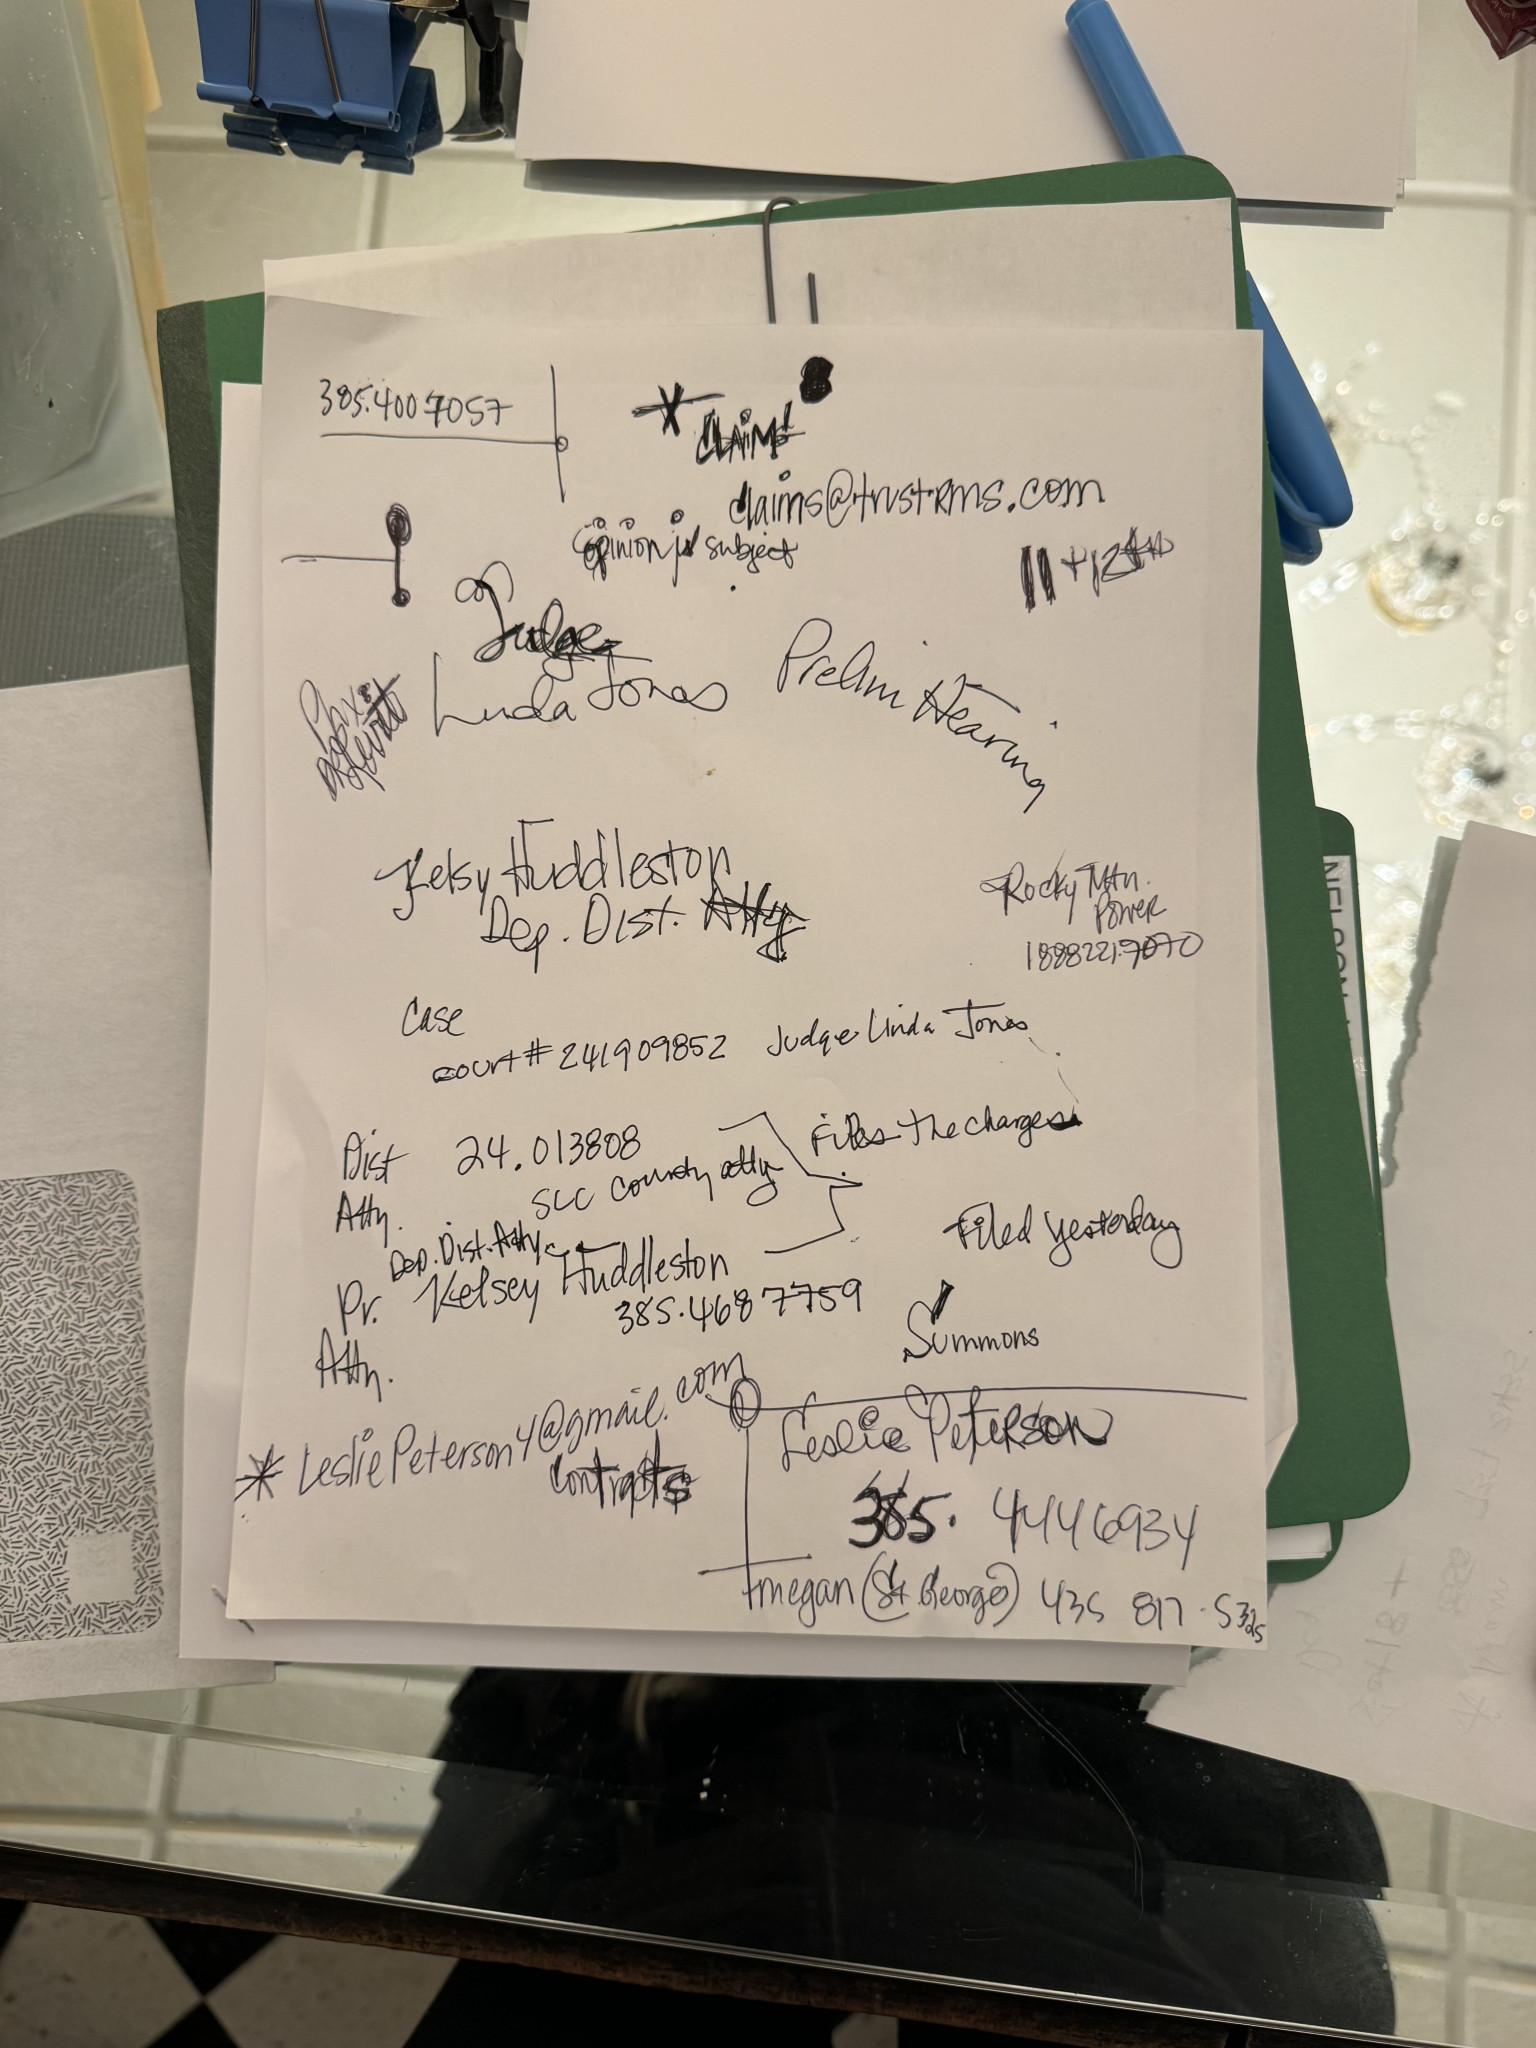 385.400 7057
* CLAIMS
claims@trustrms.com
opinion is subject
11 + 12th
Judge
Linda Jones
Prelim Hearing
Kelsy Huddleston
Dep. Dist. Atty
Rocky Mtn.
Power
1888 221.7070
Case
court # 241909852 Judge Linda Jones
Dist 24.013808
Files the charges
Atty. SLC County atty
Dep. Dist. Atty
Filed yesterday
Pr. Kelsey Huddleston
385.468 7759
Atty.
Summons
* LesliePeterson4@gmail.com
contracts
Leslie Peterson
385. 4446934
megan (St. George) 435 817 - 5325
NELSON